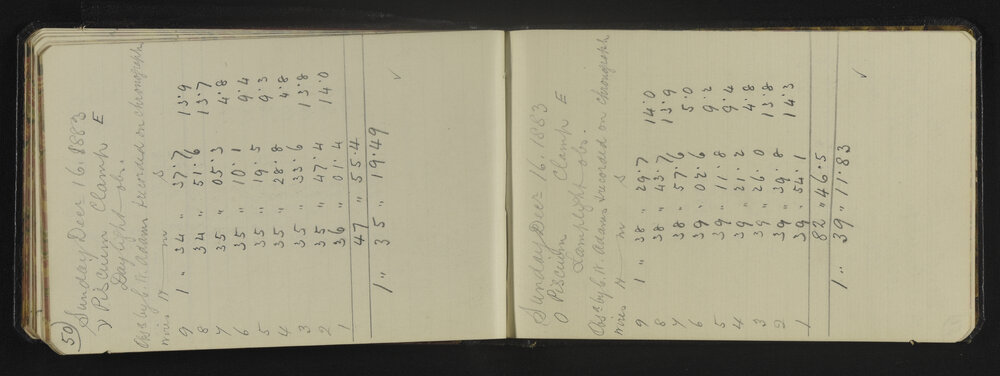 50
Sunday Decr 16. 1883
ν Piscium Clamp E
Daylight obs.
Obsd by C. W. Adams & recorded on chronograph
Wires H m s
9 1 " 34 " 37.7 13.9
8 34 " 51.6 13.7
7 35 " 05.3 4.8
6 35 " 10.1 9.4
5 35 " 19.5 9.3
4 35 " 28.8 4.8
3 35 " 33.6 13.8
2 35 " 47.4 14.0
1 36 " 01.4
47 " 55.4
1 " 35 " 19.49
✓
Sunday Decr 16. 1883
O Piscium Clamp E
Lamplight obs.
Obsd by C. W. Adams & recorded on chronograph
Wires H m s
9 1 " 38 " 29.7 14.0
8 38 " 43.7 13.9
7 38 " 57.6 5.0
6 39 " 02.6 9.2
5 39 " 11.8 9.4
4 39 " 21.2 4.8
3 39 " 26.0 13.8
2 39 " 39.8 14.3
1 39 " 54.1
82 " 46.5
1 " 39 " 11.83
✓